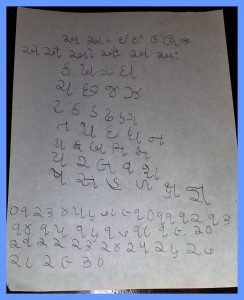 અ આ ઇ ઈ ઉ ઊ ઋ
એ ઐ ઓ ઔ અં અઃ
ક ખ ગ ઘ
ચ છ જ ઝ
ટ ઠ ડ ઢ ણ
ત થ દ ધ ન
પ ફ બ ભ મ
ય ર લ વ શ
ષ સ હ ળ ક્ષ જ્ઞ
૦ ૧ ૨ ૩ ૪ ૫ ૬ ૭ ૮ ૯ ૧૦ ૧૧ ૧૨ ૧૩
૧૪ ૧૫ ૧૬ ૧૭ ૧૮ ૧૯ ૨૦
૨૧ ૨૨ ૨૩ ૨૪ ૨૫ ૨૬ ૨૭
૨૮ ૨૯ ૩૦